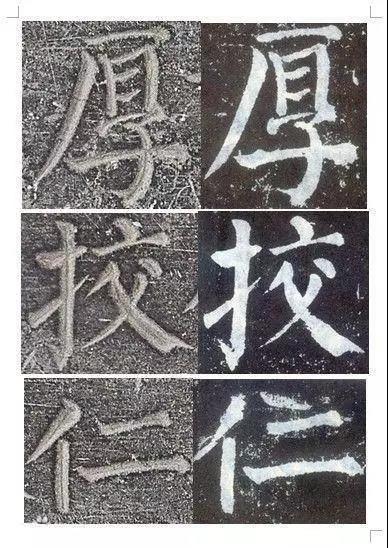 厚 厚
挍 挍
仁 仁